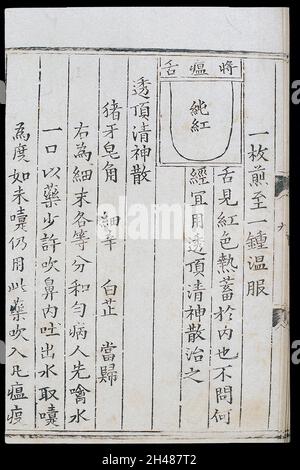 一枚煎至一鍾温服
將瘟舌
純紅
舌見紅色熱蓄於內也不問何
經宜用透頂清神散治之
透頂清神散
猪牙皂角 細辛 白芷 當歸
右為細末各等分和勻病人先噙水
一口以藥少許吹鼻內吐出水取嚏
為度如未嚏仍用此藥吹入凡瘟疫
alamy
Image ID: 2H487T2
www.alamy.com